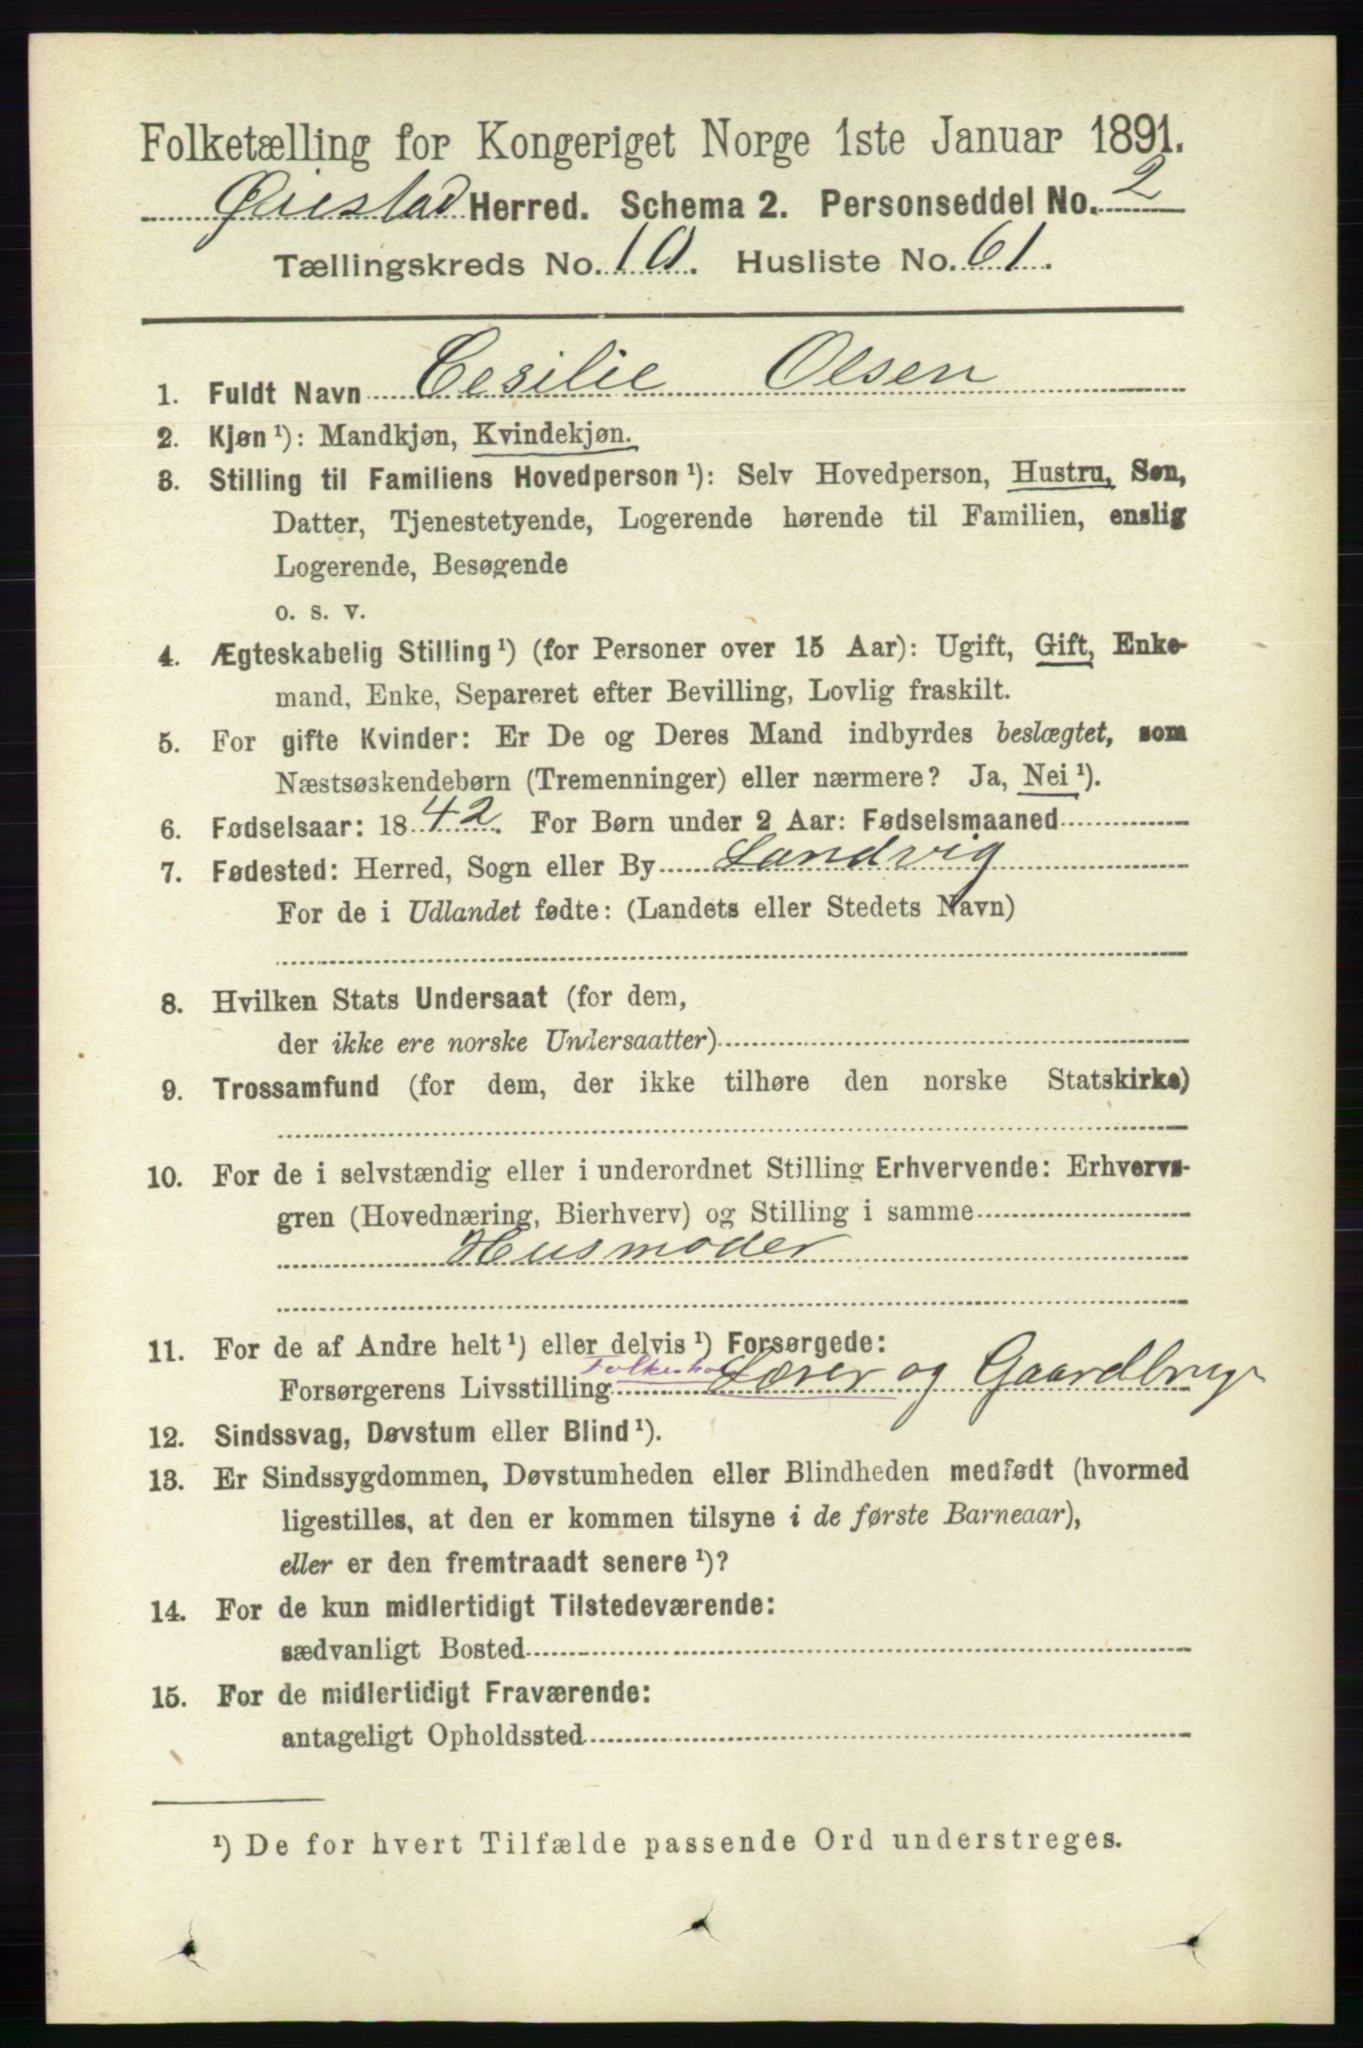 Folketælling for Kongeriget Norge 1ste Januar 1891.
Øiestad Herred. Schema 2. Personseddel No. 2
Tællingskreds No. 10. Husliste No. 61.
1. Fuldt Navn Cesilie Olsen
2. Kjøn ¹): Mandkjøn, Kvindekjøn.
3. Stilling til Familiens Hovedperson ¹): Selv Hovedperson, Hustru, Søn,
Datter, Tjenestetyende, Logerende hørende til Familien, enslig
Logerende, Besøgende
o. s. v.
4. Ægteskabelig Stilling ¹) (for Personer over 15 Aar): Ugift, Gift, Enke-
mand, Enke, Separeret efter Bevilling, Lovlig fraskilt.
5. For gifte Kvinder: Er De og Deres Mand indbyrdes beslægtet, som
Næstsøskendebørn (Tremenninger) eller nærmere? Ja, Nei ¹).
6. Fødselsaar: 1842. For Børn under 2 Aar: Fødselsmaaned
7. Fødested: Herred, Sogn eller By Landvig
For de i Udlandet fødte: (Landets eller Stedets Navn)
8. Hvilken Stats Undersaat (for dem,
der ikke ere norske Undersaatter)
9. Trossamfund (for dem, der ikke tilhøre den norske Statskirke)
10. For de i selvstændig eller i underordnet Stilling Erhvervende: Erhvervs-
gren (Hovednæring, Bierhverv) og Stilling i samme
Husmoder
11. For de af Andre helt ¹) eller delvis ¹) Forsørgede:
Forsørgerens Livsstilling Lærer og Gaardbrug
12. Sindssvag, Døvstum eller Blind ¹).
13. Er Sindssygdommen, Døvstumheden eller Blindheden medfødt (hvormed
ligestilles, at den er kommen tilsyne i de første Barneaar),
eller er den fremtraadt senere ¹)?
14. For de kun midlertidigt Tilstedeværende:
sædvanligt Bosted
15. For de midlertidigt Fraværende:
antageligt Opholdssted
¹) De for hvert Tilfælde passende Ord understreges.